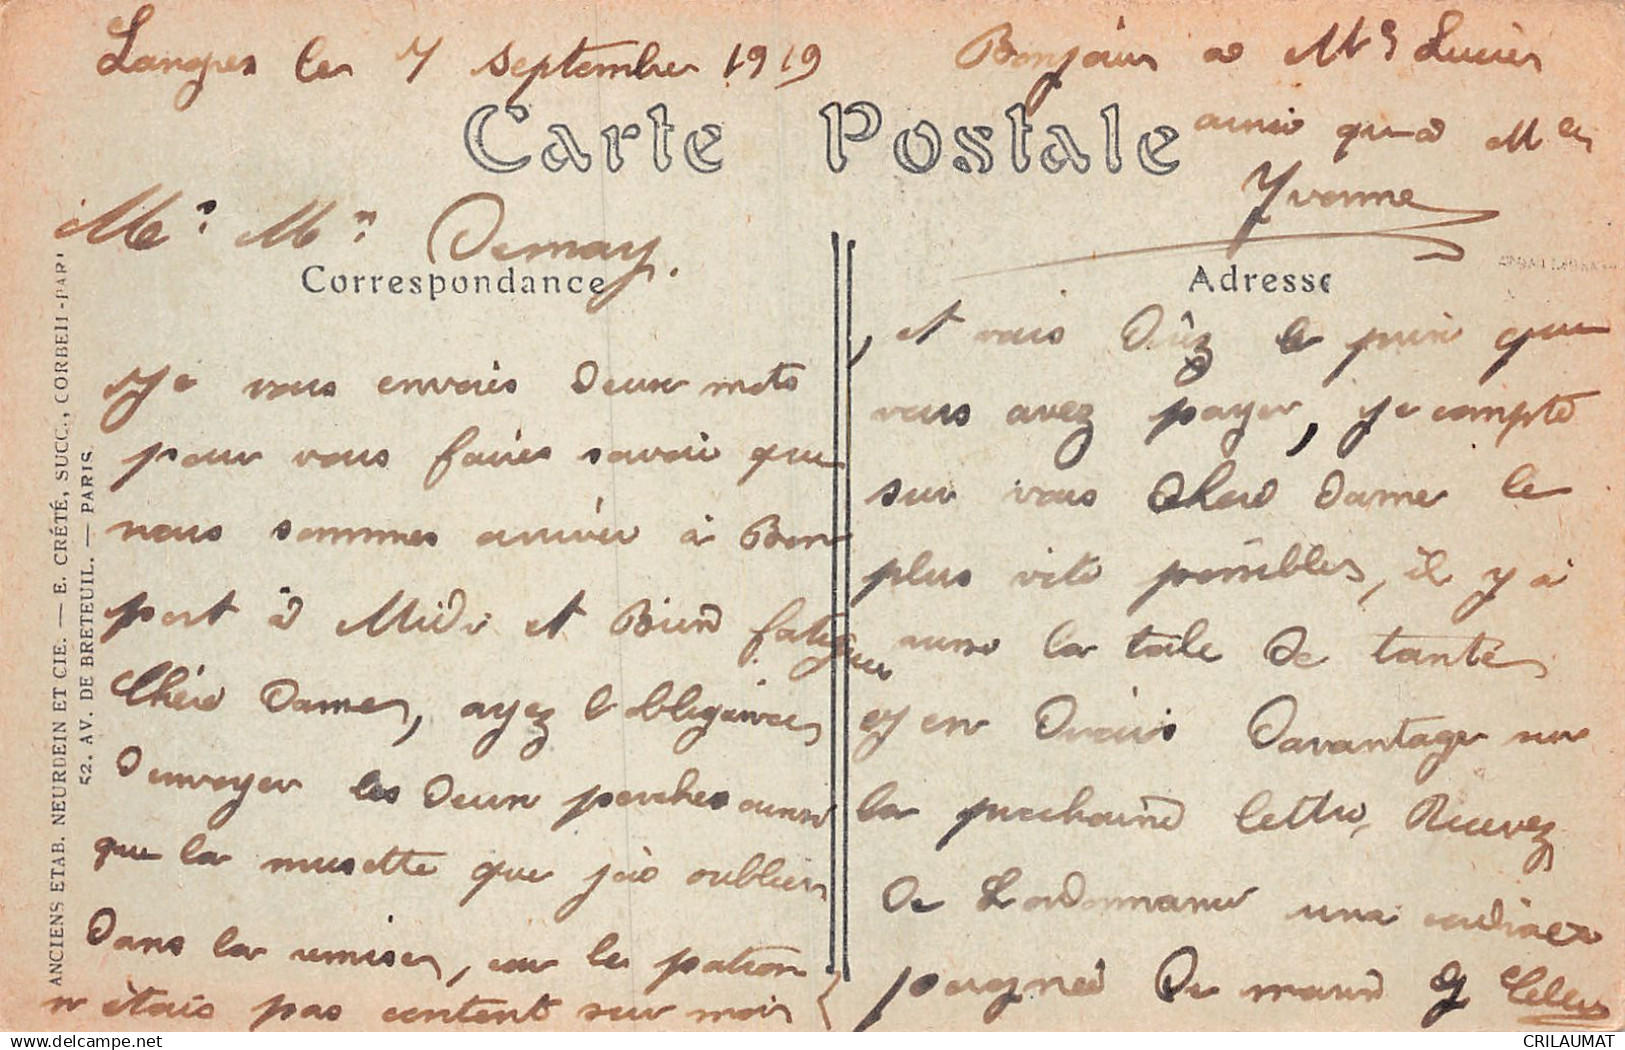 Langres le 7 septembre 1919
Bonjour a Mr Lucien
ainsi qua Mlle
Yvonne
Carte Postale
Mr Mme Demay.
Correspondance
Adresse
Je vous envois deux mots
pour vous faires savoir que
nous sommes arriver à Bon
port à Midi et Bien fatiguer
Chère Dames, ayez l obligeance
d envoyer les deux perches ainsi
que la musette que jai oublier
dans la remises, car le patron
n étais pas content sur moi
, et vous direz le prix que
vous avez payer, je compte
sur vous Chere Dames le
plus vite possibles, il y a
aussi la toile de tante
j en direis davantage sur
la prochaine lettre, Recevez
de Lordonnance une cordiale
poignée de main
ANCIENS ETAB. NEURDEIN ET CIE. — E. CRÉTÉ, SUCC., CORBEIL-PARI
52. AV. DE BRETEUIL. — PARIS.
CRILAUMAT